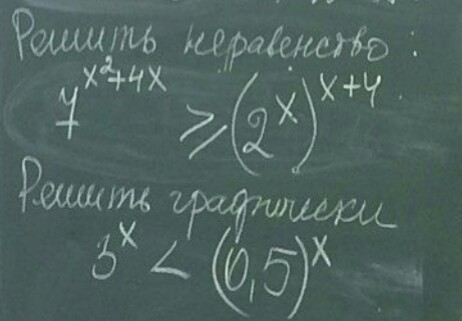 Решить неравенство:
7^{x^2+4x} ≥ (2^x)^{x+4}
Решить графически
3^x < (0,5)^x